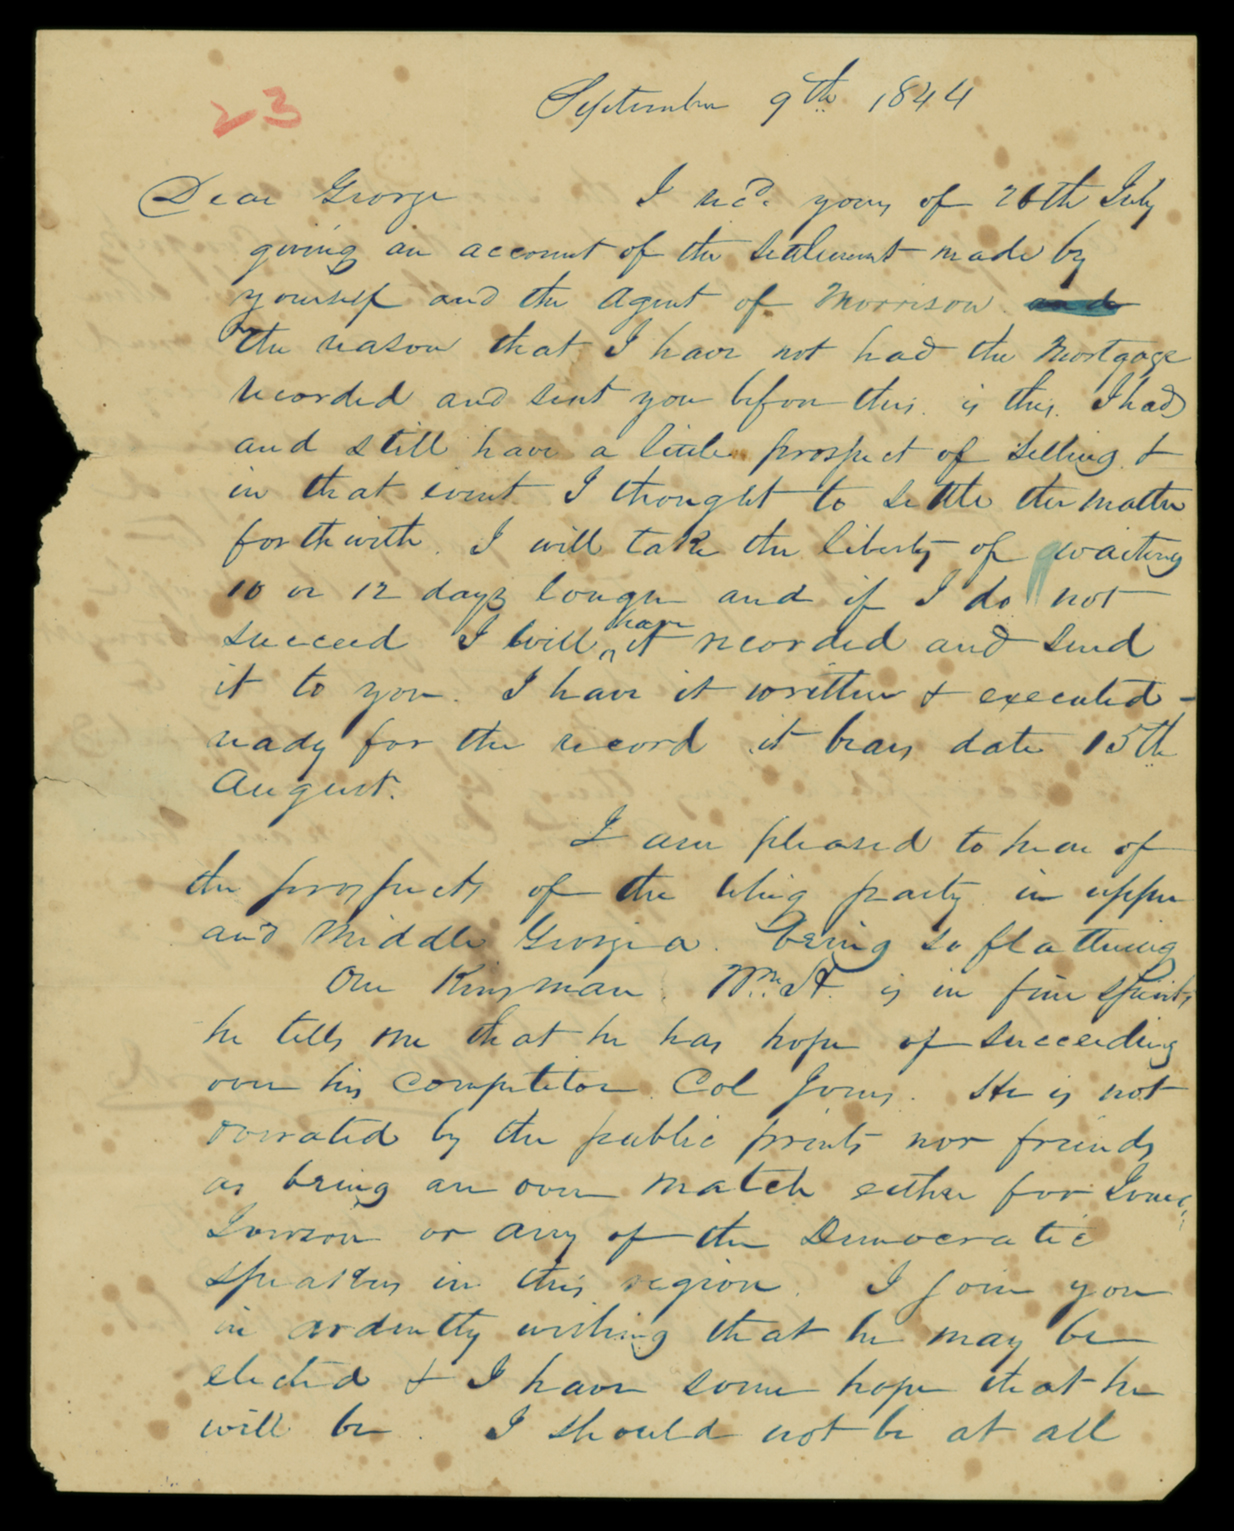 23
September 9th 1844
Dear George I recd. yours of 26th July
giving an account of the settlement made by
yourself and the Agent of Morrison and
The reason that I have not had the Mortgage
recorded and sent you before this is this. I had
and still have a little prospect of selling &
in that event I thought to settle the matter
forthwith. I will take the liberty of waiting
10 or 12 days longer and if I do not
succeed I will have it recorded and send
it to you. I have it written & executed -
ready for the record it bears date 15th
August.
I am pleased to hear of
the prospects of the whig party in upper
and Middle Georgia. being so flattering
Our Kinsman Wm. H. is in fine spirits
he tells me that he has hope of succeeding
over his competitor Col Jones. He is not
overrated by the public prints nor friends
as being an over match either for Jones,
or any of the Democratic
speakers in this region. I join you
in ardently wishing that he may be
elected & I have some hope that he
will be. I should not be at all